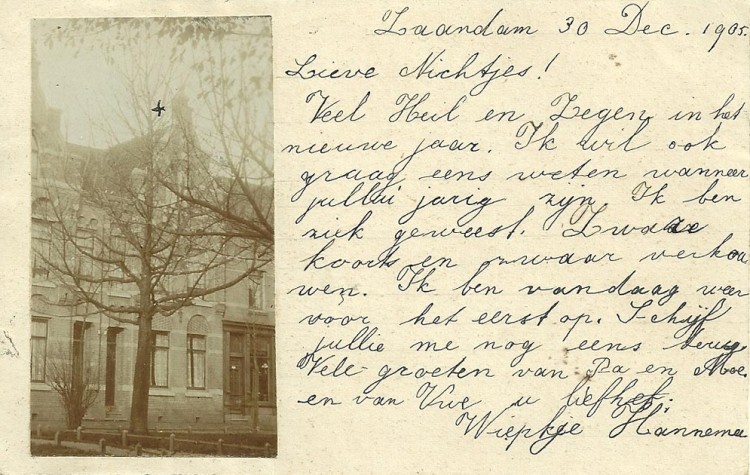 Zaandam 30 Dec. 1905.
Lieve Nichtjes!
Veel Heil en Zegen in het
nieuwe jaar. Ik wil ook
graag eens weten wanneer
jullui jarig zijn. Ik ben
ziek geweest. Zware
koorts en zwaar verkou
wen. Ik ben vandaag weer
voor het eerst op. Schijf
jullie me nog eens terug.
Vele groeten van Pa en Moe.
en van Uwe u liefheb.
Wiepkje Hannema